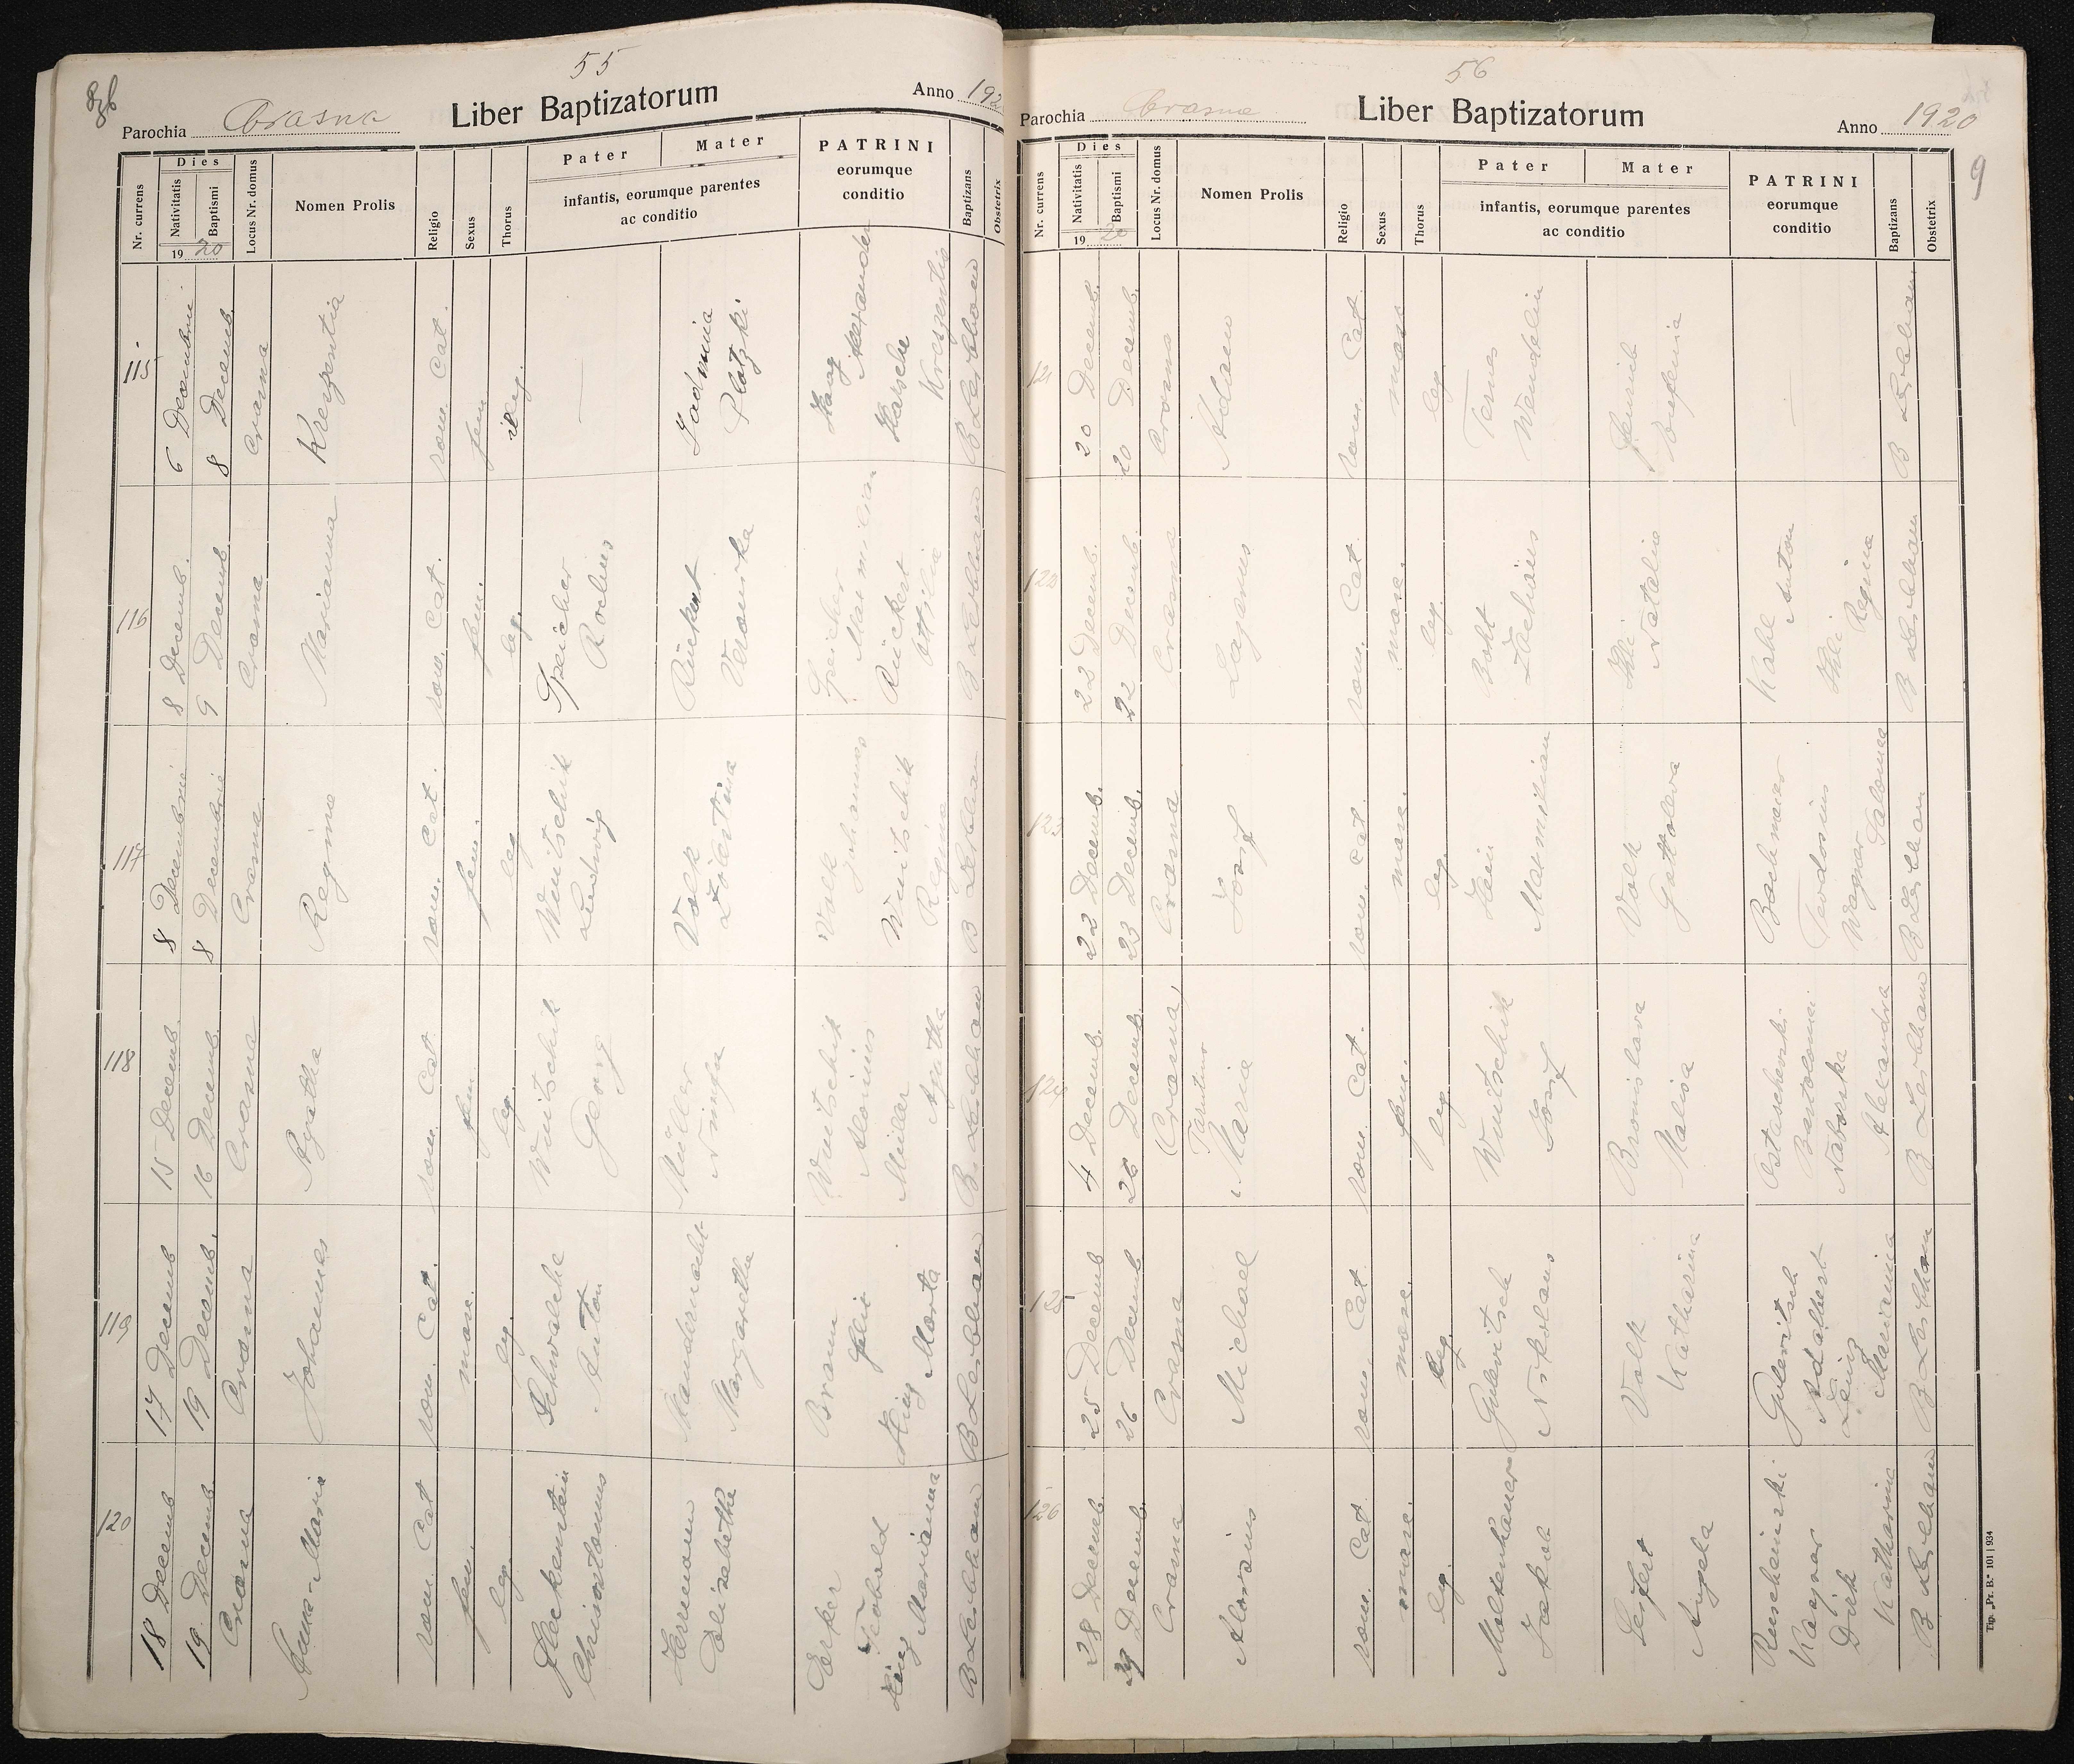 55
Parochia Crasna
Liber Baptizatorum
Anno 192
Nr. currens
Dies
Nativitatis
Baptismi
19 20
Locus Nr. domus
Nomen Prolis
Religio
Sexus
Thorus
Pater
Mater
infantis, eorumque parentes
ac conditio
PATRINI
eorumque
conditio
Baptizans
Obstetrix
115
6 Decembris
8 Decemb.
Crasna
Kreszentia
rom. Cat.
fem
illeg.
—
Jadmina
Platzki
Haag
Alexander
Hatsche
Kreszentia
B Leibham
116
8 Decemb.
9 Decemb.
Crasna
Marianna
rom. Cat.
fem.
leg.
Speicher
Rochus
Rückert
Veronika
Speicher
Maximilian
Rückert
Ottilia
B Leibham
117
8 Decembris
8 Decembris
Crasna
Regina
rom. Cat.
fem.
leg
Winitschik
Ludwig
Volk
Zölestina
Volk
Johannes
Winitschik
Regina
B Leibham
118
15 Decemb.
16 Decemb.
Crasna
Agatha
rom. Cat
fem.
leg.
Winitschik
Georg
Müller
Nimfa
Winitschik
Aloisius
Müller
Agatha
B Leibham
119
17 Decemb
19 Decemb.
Crasna
Johannes
rom. Cat.
masc.
leg.
Schwalche
Anton
Mandernacht
Margaretha
Braun
Felix
Hieg
Marta
B Leibham
120
18 Decemb
19. Decemb.
Crasna
Anna-Maria
rom. Cat
fem.
leg.
Fleckenstein
Christomus
Herrmann
Elisabetha
Erker
Teobald
Hieg
Marianna
B Leibham
56
Parochia Crasna
Liber Baptizatorum
Anno 1920
9
Nr. currens
Dies
Nativitatis
Baptismi
19 20
Locus Nr. domus
Nomen Prolis
Religio
Sexus
Thorus
Pater
Mater
infantis, eorumque parentes
ac conditio
PATRINI
eorumque
conditio
Baptizans
Obstetrix
121
20 Decemb.
20 Decemb.
Crasna
Adam
rom. Cat.
masc
leg
Ternes
Wendelin
Josefina
—
B Leibham
122
22 Decemb.
22 Decemb.
Crasna
Lazarus
rom. Cat.
masc.
leg.
Bokt
Zachäus
Ihli
Natalia
Kahl
Anton
Ihli
Regina
B Leibham
123
22 Decemb.
23 Decemb.
Crasna
Josef
rom. Cat.
masc.
leg.
Hein
Maxmilian
Volk
Gottoleva
Bachmaer
Teodosius
Wagner
Salomea
B Leibham
124
4 Decemb.
26 Decemb.
(Crasna,
Tarutino
Maria
rom. Cat.
fem.
leg.
Winitschik
Josef
Bronislava
Malisa
Ostaschevski
Bartolomei
Naborska
Alexandra
B Leibham
125
25 Decemb
26 Decemb
Crasna
Michael
rom. Cat.
masc.
leg.
Gulevitsch
Nikolaus
Volk
Katharina
Gulevitsch
Adalbert
Leinz
Marianna
B Leibham
126
28 Decemb.
29 Decemb.
Crasna
Aloisius
rom. Cat.
masc.
leg.
Moltenhauer
Jakob
Seifert
Angela
Ruscheinski
Kaspar
Dirk
Katharina
B Leibham
Tip. „Pr. B." 101 | 934